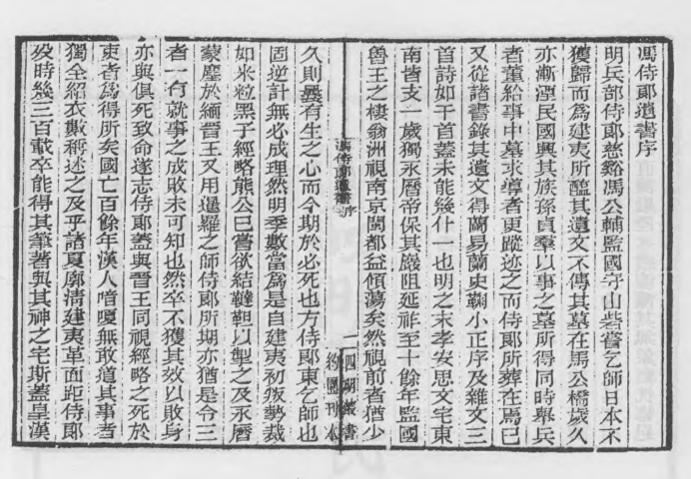 馮侍郎遺書序
明兵部侍郎慈谿馮公輔監國守山砦嘗乞師日本不
獲歸而爲建夷所醢其遺文不傳其墓在馬公橋歲久
亦漸湮民國興其族孫貞羣以事之墓所得同時舉兵
者董給事中墓求導者更蹤迹之而侍郎所葬在焉已
又從諸書錄其遺文得蘭易蘭史鞠小正序及雜文三
首詩如干首蓋未能幾什一也明之末孝安思文宅東
南皆支一歲獨永曆帝保其巖阻延祚至十餘年監國
魯王之棲翁洲視南京閩都益傾蕩矣然視前者猶少
馮侍郎遺書
序
一
四明叢書
約園刊本
久則曩有生之心而今期於必死也方侍郎東乞師也
固逆計無必成理然明季數當爲是自建夷初叛勢裁
如米粒黑子經略熊公已嘗欲結韃靼以掣之及永曆
蒙塵於緬晉王又用暹羅之師侍郎所期亦猶是令三
者一有就事之成敗未可知也然卒不獲其效以敗身
亦與俱死致命遂志侍郎蓋與晉王同視經略之死於
吏者爲得所矣國亡百餘年漢人喑噯無敢道其事者
獨全紹衣數稱述之及平諸夏廓清建夷革面距侍郎
歿時幾三百載卒能得其筆著與其神之宅斯蓋皇漢